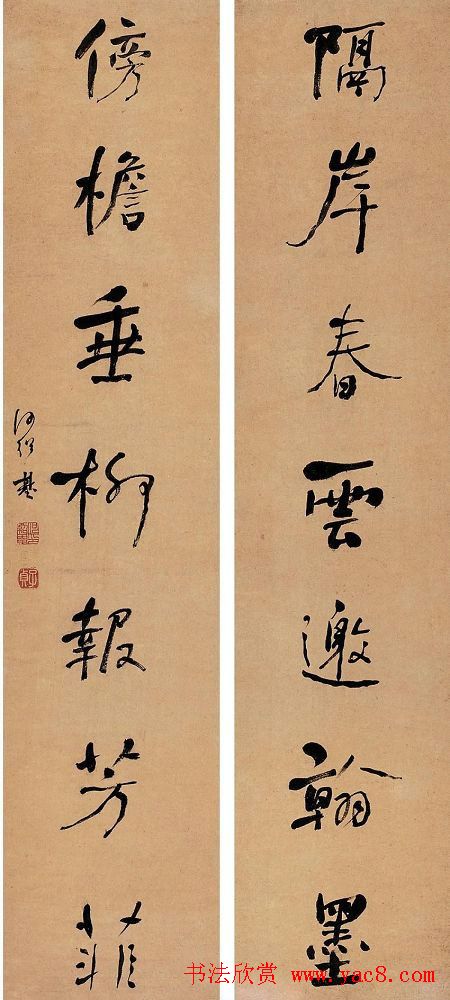 隔岸春雲邀翰墨
傍檐垂柳報芳菲
何紹基
子貞
书法欣赏 www.yac8.com